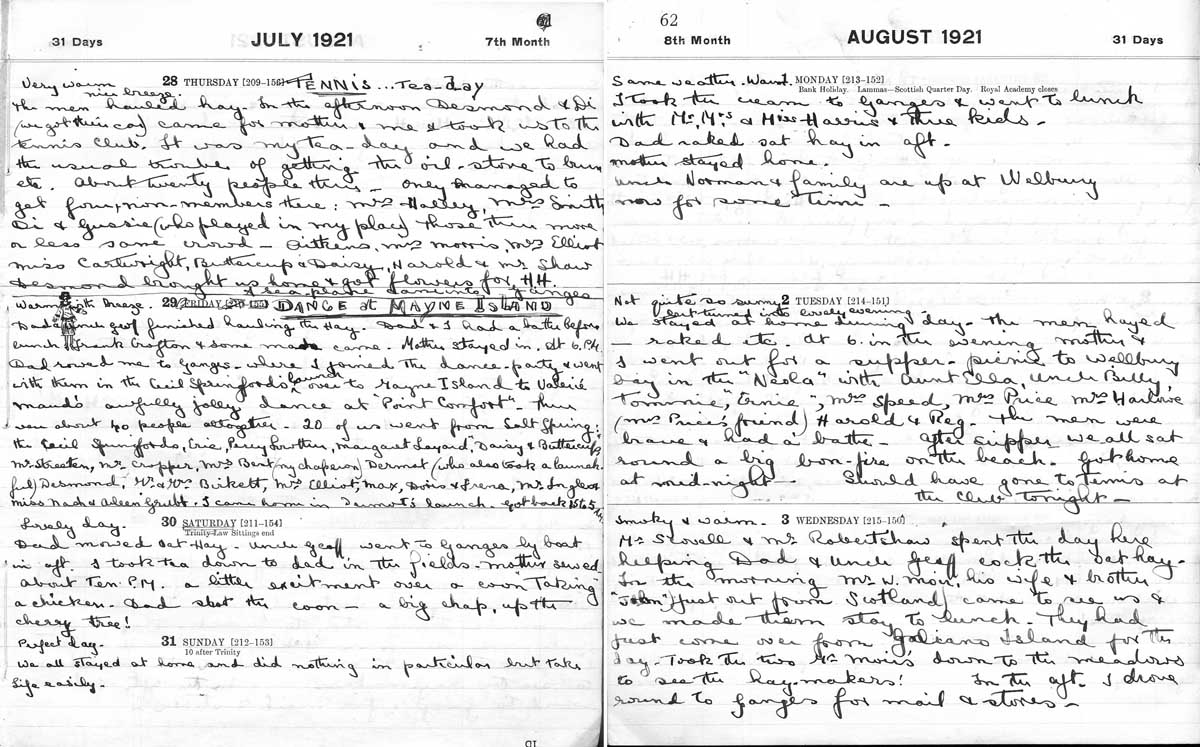 31 Days JULY 1921 7th Month
Very warm nice breeze. 28 THURSDAY [209-156] TENNIS... Tea-day
the men hauled hay. In the afternoon Desmond & Di
(we got their car) came for mother & me & took us to the
tennis club. It was my tea-day and we had
the usual trouble of getting the oil-stove to burn
etc. About twenty people there - only managed to
get four, non-members there: Mrs Halsey, Mrs Smith
Di & Gussie (who played in my place) those there more
or less same crowd - Aitkens, Mrs Morris, Mrs Elliot
Miss Cartwright, Buttercup & Daisy, Harold & Mr Shaw
Desmond brought us home & got flowers for H.H.
A sea-plane came into Ganges
Warm with breeze. 29 FRIDAY [210-155] DANCE at MAYNE ISLAND
Dad & Uncle Geof finished hauling the Hay. Dad & I had a bathe before
lunch. Frank Crofton & some came. Mother stayed in. At 6. P.M.
Dad rowed me to Ganges where I joined the dance-party & went
with them in the Cecil Springfords launch over to Mayne Island to Valerie
Maude's awfully jolly dance at "Point Comfort". There
were about 40 people altogether - 20 of us went from Salt Spring:
the Cecil Springfords, Eric, Percy Lowther, Margaret Layard, Daisy & Buttercup,
Mr Streeten, Mr Cropper, Mrs Best (my chaperon) Dermot (who also took a launch-
ful) Desmond, Mr & Mrs Birkett, Mrs Elliot, Max, Doris & Irena, Mr Inglis
Miss Nach & Aileen I came home in Dermot's launch. got back
Lovely day. 30 SATURDAY [211-154]
Trinity Law Sittings end
Dad mowed oat Hay. Uncle Geoff went to Ganges by boat
in aft. I took tea down to dad in the fields. Mother sewed
about Ten. P.M. a litter excitment over a coon "Taking"
a chicken. Dad shot the coon - a big chap, up the
cherry tree!
Perfect day. 31 SUNDAY [212-153]
10 after Trinity
We all stayed at home and did nothing in particular but take
life easily.
62
8th Month AUGUST 1921 31 Days
Same weather. Warm. MONDAY [213-152]
Bank Holiday. Lammas—Scottish Quarter Day. Royal Academy closes
I took the cream to Ganges & went to lunch
with Mr, Mrs & Miss Harris & three kids -
Dad raked oat hay in aft.
Mother stayed home.
Uncle Norman & family are up at Welbury
now for some time -
Not quite so sunny 2 TUESDAY [214-151]
but turned into lovely evening
We stayed at home during day. The men hayed
- raked etc. At 6. in the evening mother &
I went out for a supper-picnic to Wellbury
bay in the "Neola" with Aunt Ella, Uncle Billy,
Tommie, Ernie, Mrs Speed, Mrs Price Mrs Harlowe
(Mrs Price's friend) Harold & Reg. The men were
brave & had a bathe - After supper we all sat
round a big bon-fire on the beach. Got home
at mid-night - Should have gone to tennis at
the Club tonight -
Smoky & warm. 3 WEDNESDAY [215-150]
Mr Stovall & Mr Robertshaw spent the day here
helping Dad & Uncle Geoff cock the oat hay.
In the morning Mr W. Moir, his wife & brother
"John" (just out from Scotland) came to see us &
we made them stay to lunch. They had
just come over from Galiano Island for the
day. Took the two Mr Moirs down to the meadows
to see the hay-makers! In the aft. I drove
round to Ganges for mail & stores -